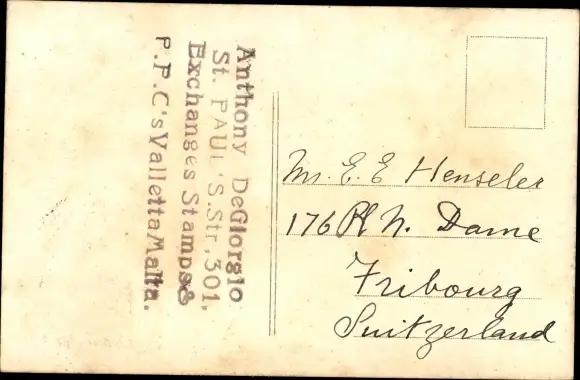 Anthony DeGiorgio
St. PAUL'S.Str,301,
Exchanges Stamps&
P.P.C's Valletta Malta.
Mr. E. E Henseler
176 Pl N. Dame
Fribourg
Suitzerland